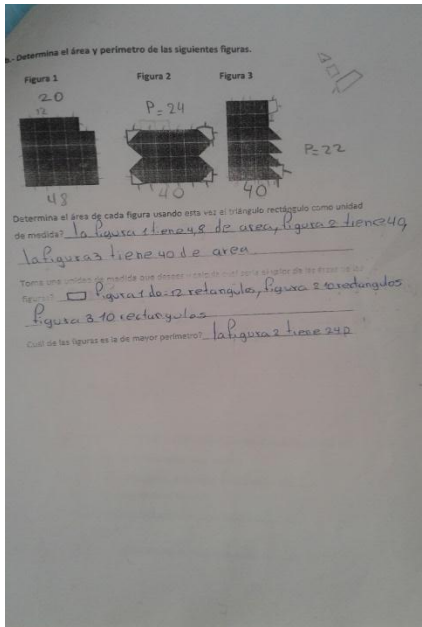 b.- Determina el área y perimetro de las siguientes figuras.
Figura 1 Figura 2 Figura 3
20
12
P=24
P=22
48 40 40
Determina el área de cada figura usando esta vez el triángulo rectángulo como unidad
de medida? la figura 1 tiene 48 de area, figura 2 tiene 40,
la figura 3 tiene 40 de area
Toma una unidad de medida que desees
figura 1 da=12 retangulos, figura 2 10 rectangulos
figura 3 10 rectangulos
Cuál de las figuras es la de mayor perímetro? la figura 2 tiene 24p